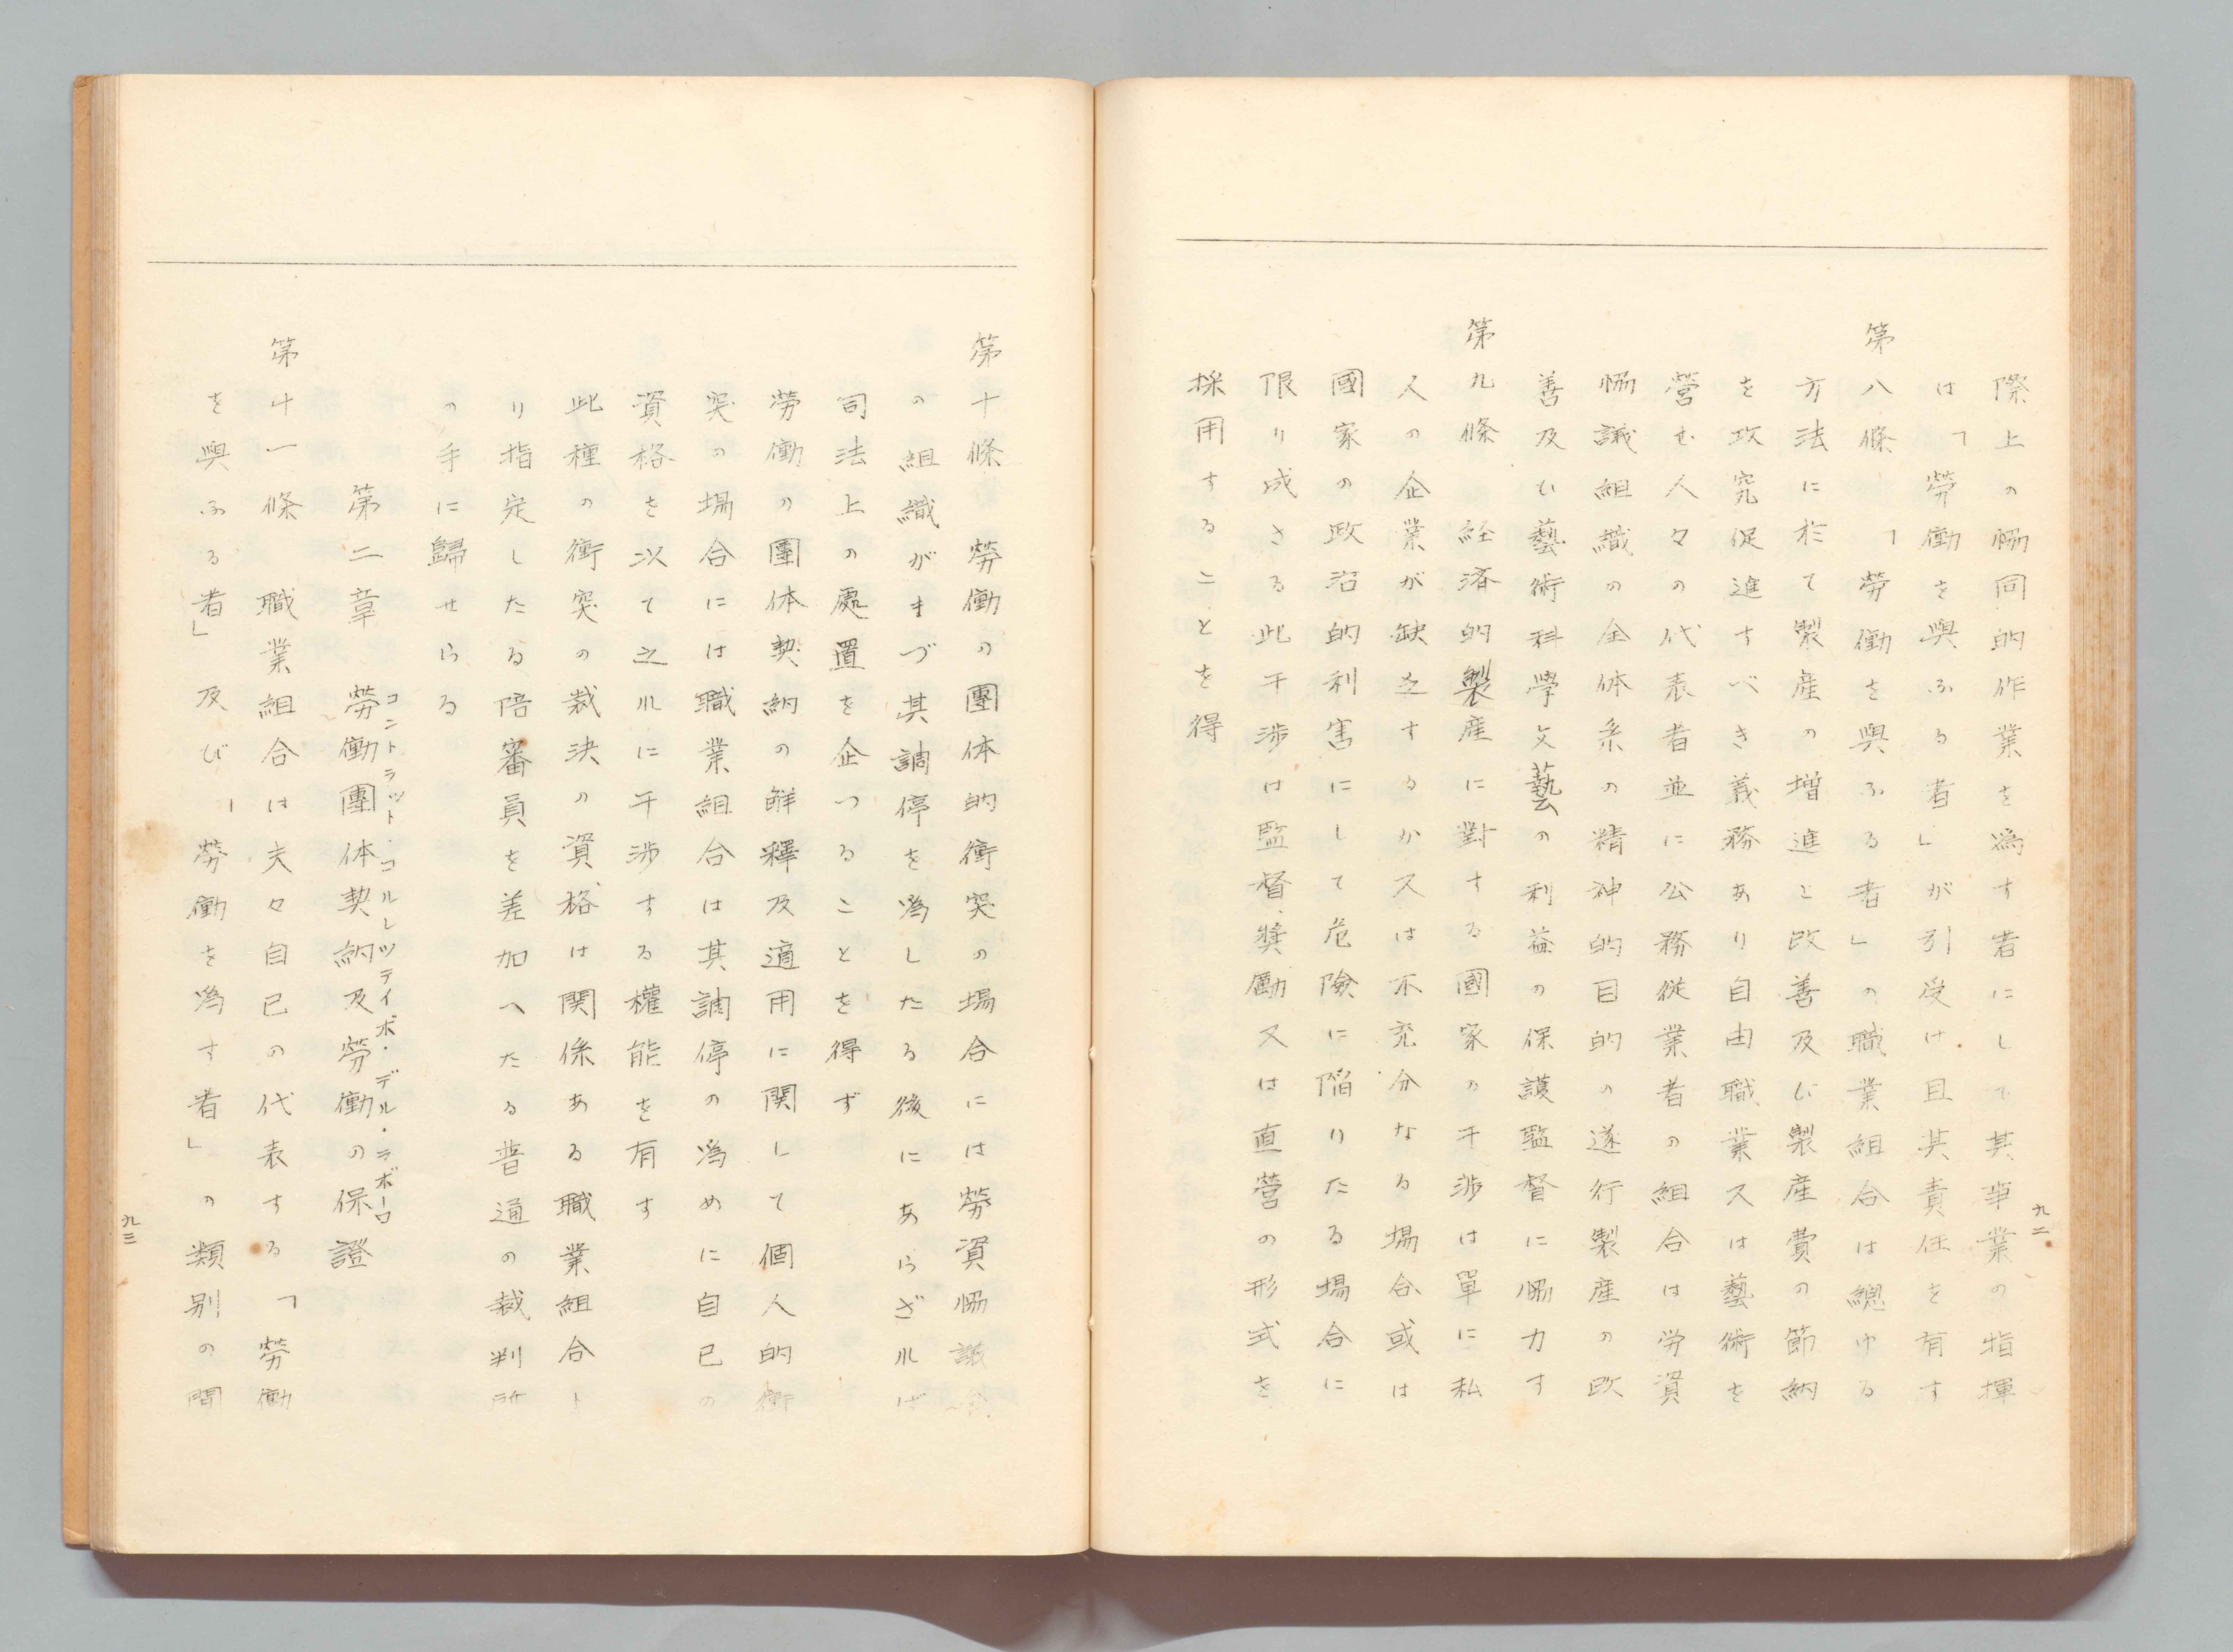 九二
際上の協同的作業を為す者にして其事業の指揮
は「勞働を與ふる者」が引受け且其責任を有す
第八條　「勞働を與ふる者」の職業組合は總ゆる
方法に於て製産の増進と改善及び製産費の節納
を攻究促進すべき義務あり自由職業又は藝術を
営む人々の代表者並に公務従業者の組合は労資
協議組織の全体系の精神的目的の遂行製産の改
善及び藝術科學文藝の利益の保護監督に協力す
第九條　経済的製産に對する國家の干渉は單に私
人の企業が缺乏するか又は不充分なる場合或は
國家の政治的利害にして危険に陥りたる場合に
限り成さる此干渉は監督、奬勵又は直営の形式を
採用することを得
第十條　勞働の團体的衝突の場合には勞資協議會
の組織がまづ其調停を為したる後にあらざれば
司法上の處置を企つることを得ず
勞働の團体契納の解釋及適用に関して個人的衝
突の場合には職業組合は其調停の為めに自己の
資格を以て之れに干渉する權能を有す
此種の衝突の裁決の資格は関係ある職業組合よ
り指定したる陪審員を差加へたる普通の裁判所
の手に歸せらる
第二章　勞働團体契納及勞働の保證
コントラット・コルレツティボ・デル・ラボーロ
第十一條　職業組合は夫々自己の代表する「勞働
を與ふる者」及び「勞働を為す者」の類別の間
九三